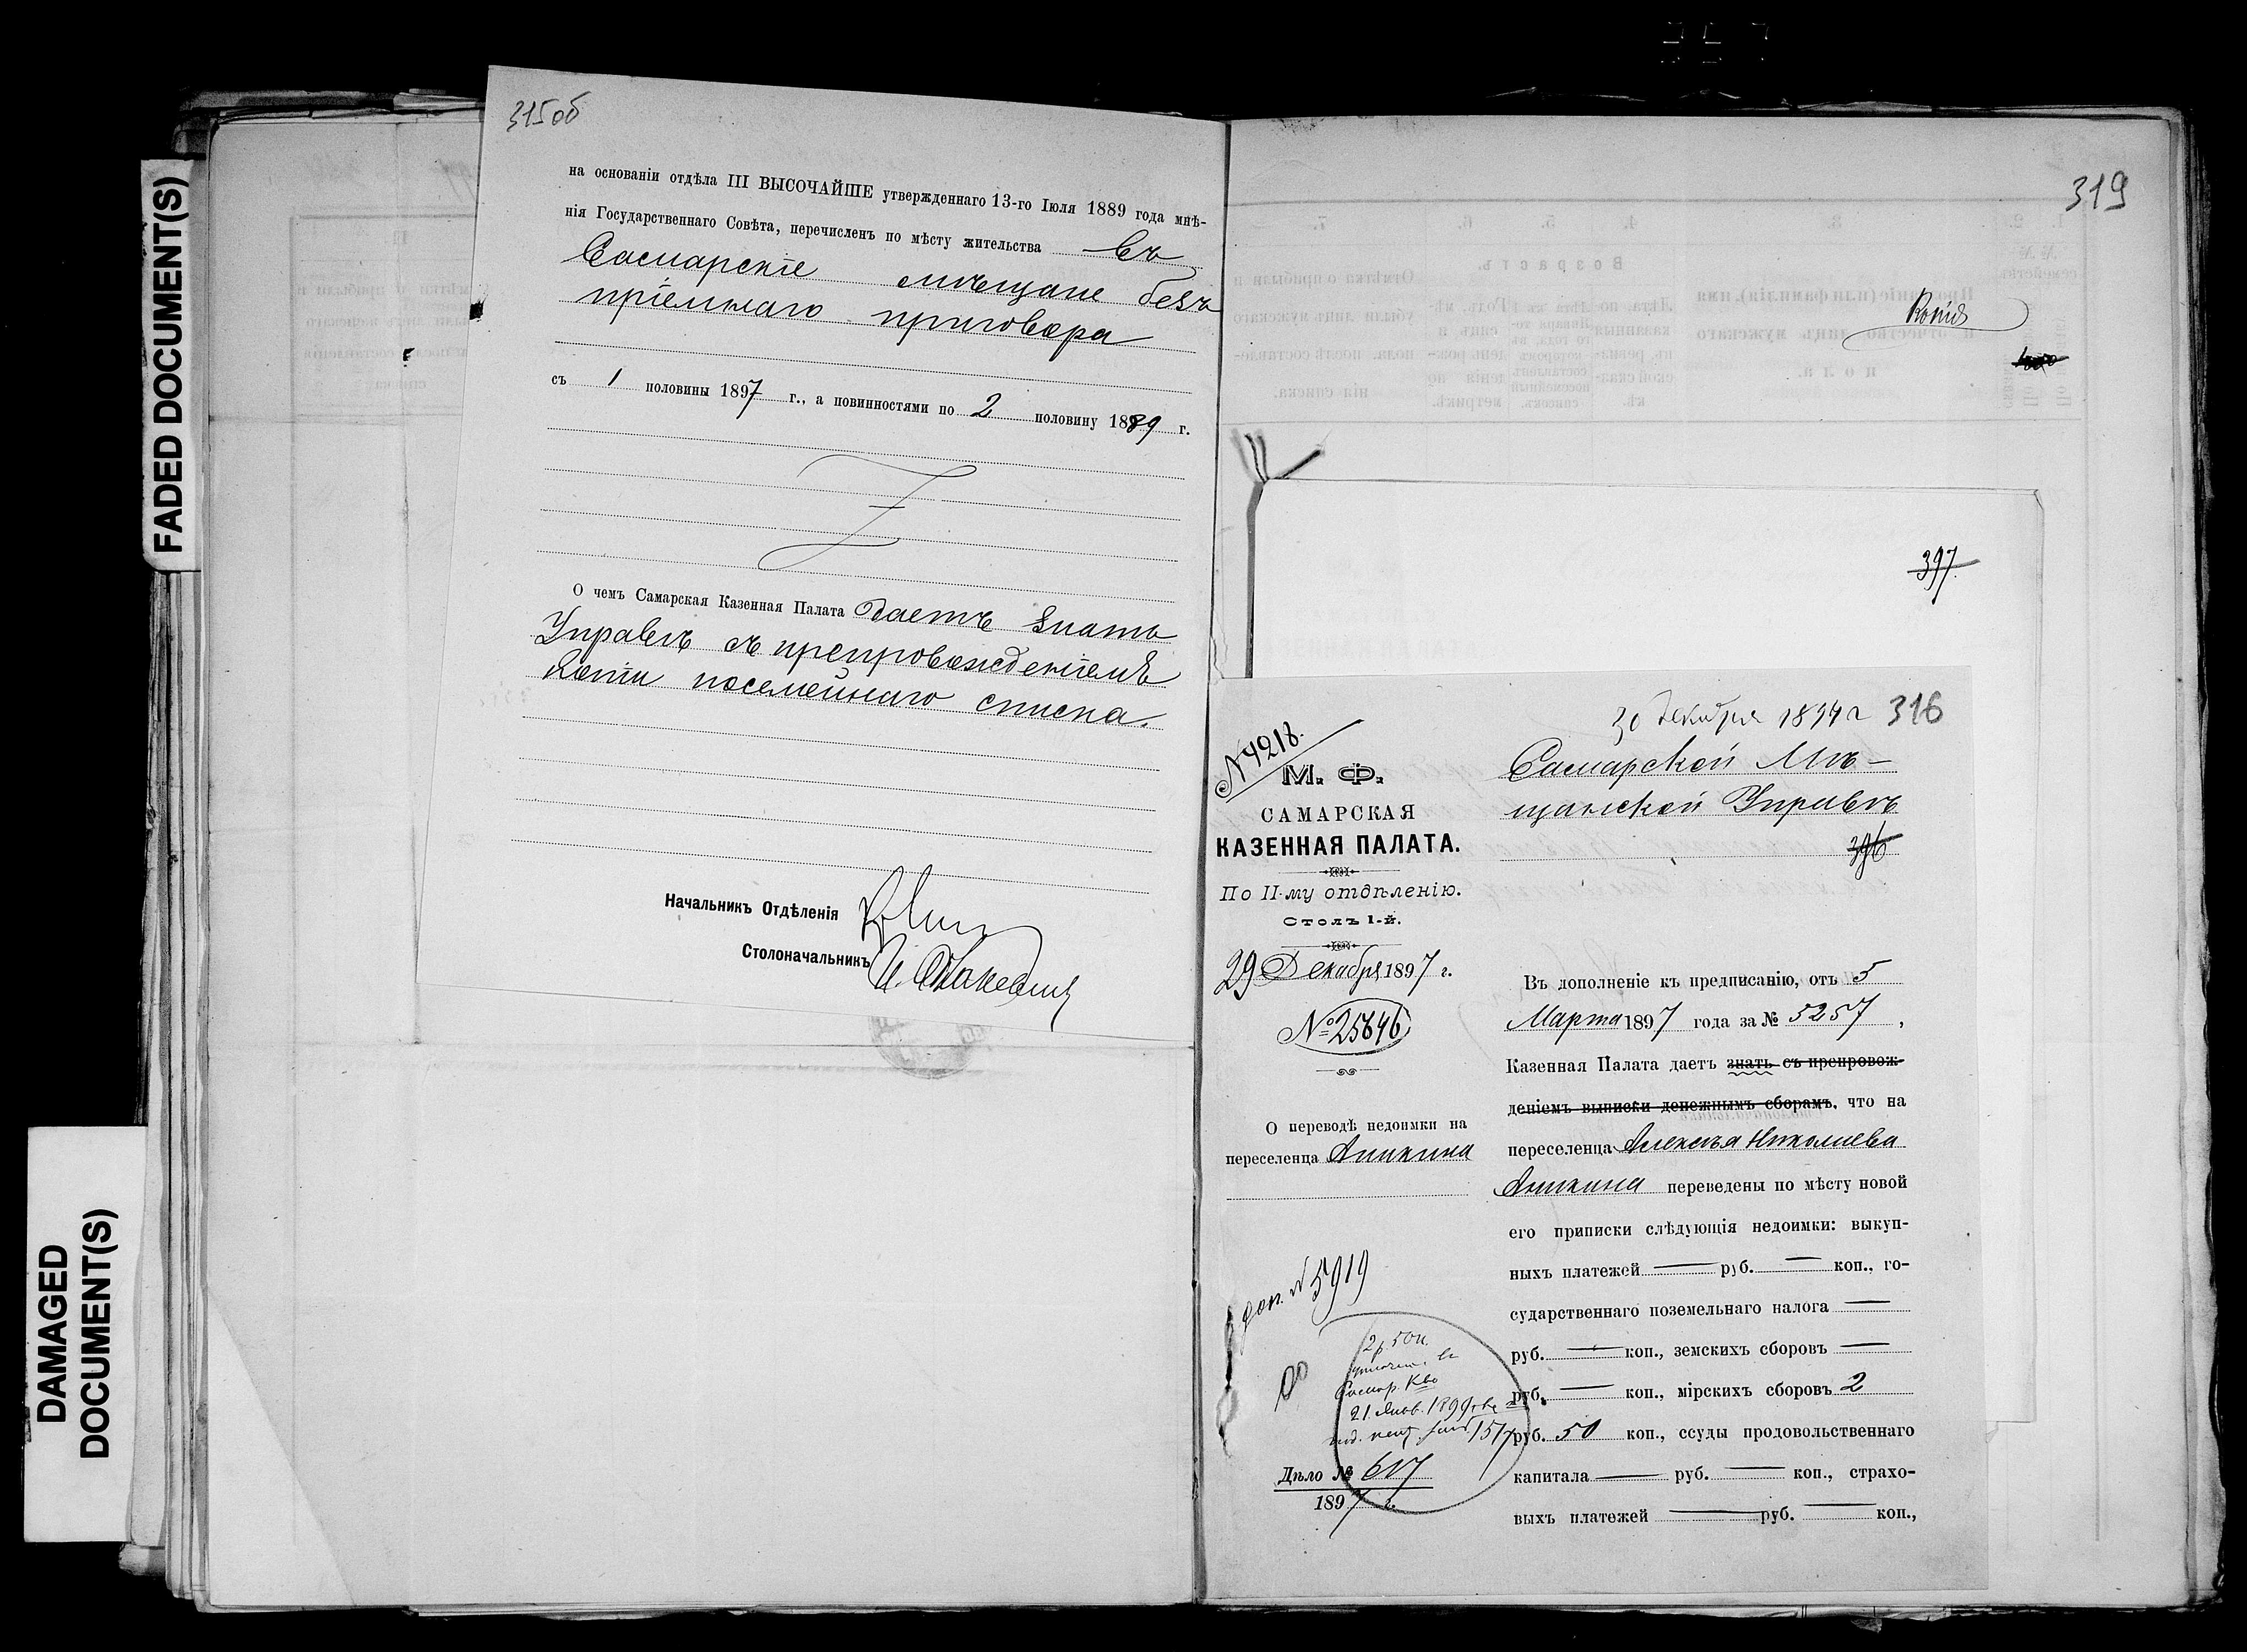 FADED DOCUMENT(S)
DAMAGED
DOCUMENT(S)
315об
на основаніи отдѣла III ВЫСОЧАЙШЕ утвержденнаго 13-го Іюля 1889 года мнѣ-
нія Государственнаго Совѣта, перечисленъ по мѣсту жительства въ
Самарскіе мѣщане безъ
пріемнаго приговора
съ 1 половины 1897 г., а повинностями по 2 половину 1889 г.
О чемъ Самарская Казенная Палата даетъ знать
Управѣ съ препровожденіемъ
копіи посемейнаго списка.
Начальникъ Отдѣленія
Столоначальникъ
319
Копія
397
30 декабря 1897 г 316
№ 4218.
М. Ф.
САМАРСКАЯ
КАЗЕННАЯ ПАЛАТА.
По II-му отдѣленію.
Столъ 1-й.
29 Декабря 1897 г.
№ 25646
О переводѣ недоимки на
переселенца Аникина
доп. № 5919
2 р. 50 к.
21 Янв. 1899
Дѣло № 617
1897 г.
Самарской Мѣ-
щанской Управѣ
396
Въ дополненіе къ предписанію, отъ 5
Марта 1897 года за № 5257,
Казенная Палата даетъ знать съ препровож-
деніемъ выписки денежнымъ сборамъ, что на
переселенца Алексѣя Николаева
Аникина переведены по мѣсту новой
его приписки слѣдующія недоимки: выкуп-
ныхъ платежей — руб. — коп., го-
сударственнаго поземельнаго налога —
руб. — коп., земскихъ сборовъ —
руб. — коп., мірскихъ сборовъ 2
руб. 50 коп., ссуды продовольственнаго
капитала — руб. — коп., страхо-
выхъ платежей — руб. — коп.,